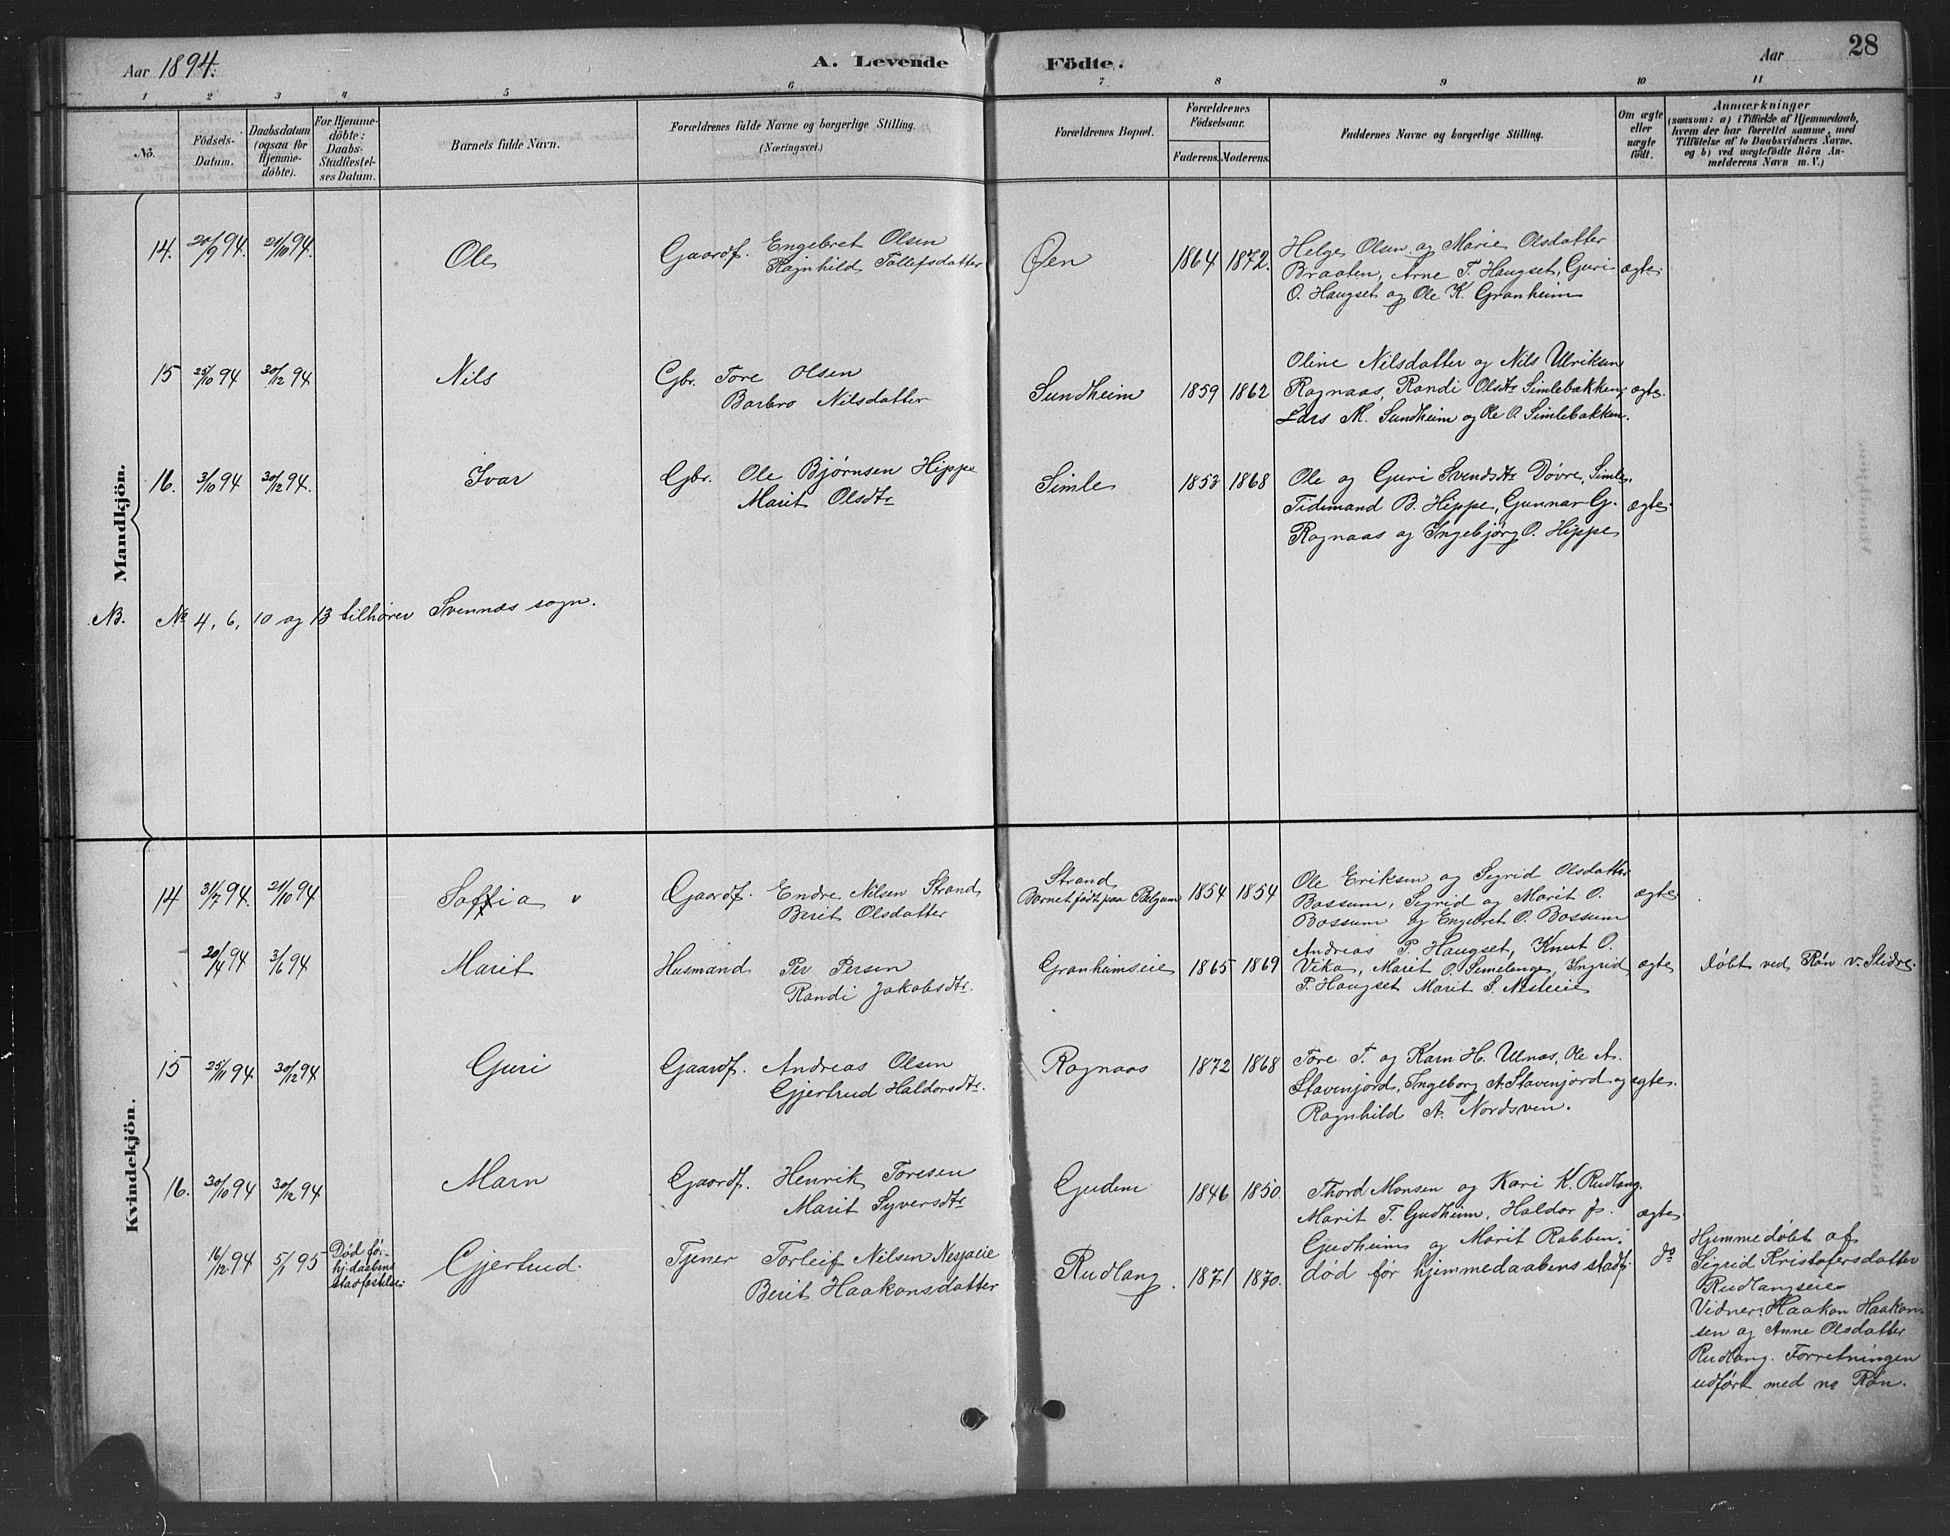 Aar 1894. A. Levende Födte. Aar 28
1 2 3 4 5 6 7 8 9 10 11
No.
Födsels-Datum.
Daabsdatum (ogsaa for Hjemme-döbte).
For Hjemme-döbte: Daabs-Stadfæstel-ses Datum.
Barnets fulde Navn.
Forældrenes fulde Navne og borgerlige Stilling.
(Næringsvei.)
Forældrenes Bopæl.
Forældrenes Födselsaar.
Faderens. Moderens.
Faddernes Navne og borgerlige Stilling.
Om ægte eller uægte födt.
Anmærkninger
(saasom: a) i Tilfælde af Hjemmedaab,
hvem der har forrettet samme, med
Tilföielse af to Daabsvidners Navne,
og b) ved uægtefödte Börn An-
melderens Navn m. V.)
Mandkjön.
14. 20/9 94. 21/10 94. Ole Gaardf. Engebret Olsen
Ragnhild Tollefsdatter
Øen 1864 1872.
Helge Olsen og Marie Olsdatter
Braaten, Arne T. Haugset, Guri
O. Haugset og Ole K. Granheim
ægte.
15 25/10 94 30/12 94 Nils Gbr. Tore Olsen
Barbro Nilsdatter
Sundheim 1859 1862
Oline Nilsdatter og Nils Ulriksen
Ragnaas, Randi Olsdtr Simlebakken,
Lars M. Sundheim og Ole O. Simlebakken.
ægte.
16. 3/10 94 30/12 94. Ivar Gbr. Ole Bjørnsen Hippe
Marit Olsdtr
Simle 1853 1868
Ole og Guri Svendsdtr Døvre, Simle,
Tidemand B. Hippe, Gunnar G.
Ragnaas og Ingebjørg O. Hippe
ægte.
NB. No 4, 6, 10 og 13 tilhører Svennæs sogn.
Kvindekjön.
14 31/7 94. 21/10 94 Soffia Gaardf. Endre Nilsen Strand
Berit Olsdatter
Strand
Barnet født paa
1854 1854
Ole Eriksen og Sigrid Olsdatter
Bossum, Sigrid og Marit O.
Bossum og Engebret O. Bossum
ægte
20/4 94 3/6 94 Marit Husmand Per Persen
Randi Jakobsdtr.
Granheimseie 1865 1869
Andreas P. Haugset, Knut O.
Vika, Marit O. Simlenge, Ingrid
T. Haugset Marit S. Nesteie
ægte
døbt ved Røn v. Slidre
15 25/11 94 30/12 94 Guri Gaardf. Andreas Olsen
Gjertrud Haldorsdtr.
Ragnaas 1872 1868
Tore T. og Karn H. Ulnæs, Ole A.
Stavenjord, Ingeborg A. Stavenjord og
Ragnhild A. Nordsven.
ægte.
16. 30/10 94 30/12 94 Marn Gaardf. Henrik Toresen
Marit Syversdtr
Gudem 1846 1850.
Thord Monsen og Kari K. Rudlang.
Marit T. Gudheim, Haldor
Gudheim og Marit Robben.
ægte
16/12 94 5/1 95 Død før
hj.daabens
stadfestelse.
Gjertrud. Tjener Torleif Nilsen Nesjaeie
Berit Haakonsdatter
Rudlang. 1871 1870.
død før hjemmedaabens stadf.
do
Hjemmedøbt af
Sigrid Kristofersdatter
Rudlangseie
Vidner: Haakon Haakon-
sen og Anne Olsdatter
Rudlang. Forretningen
udført med no Røn.